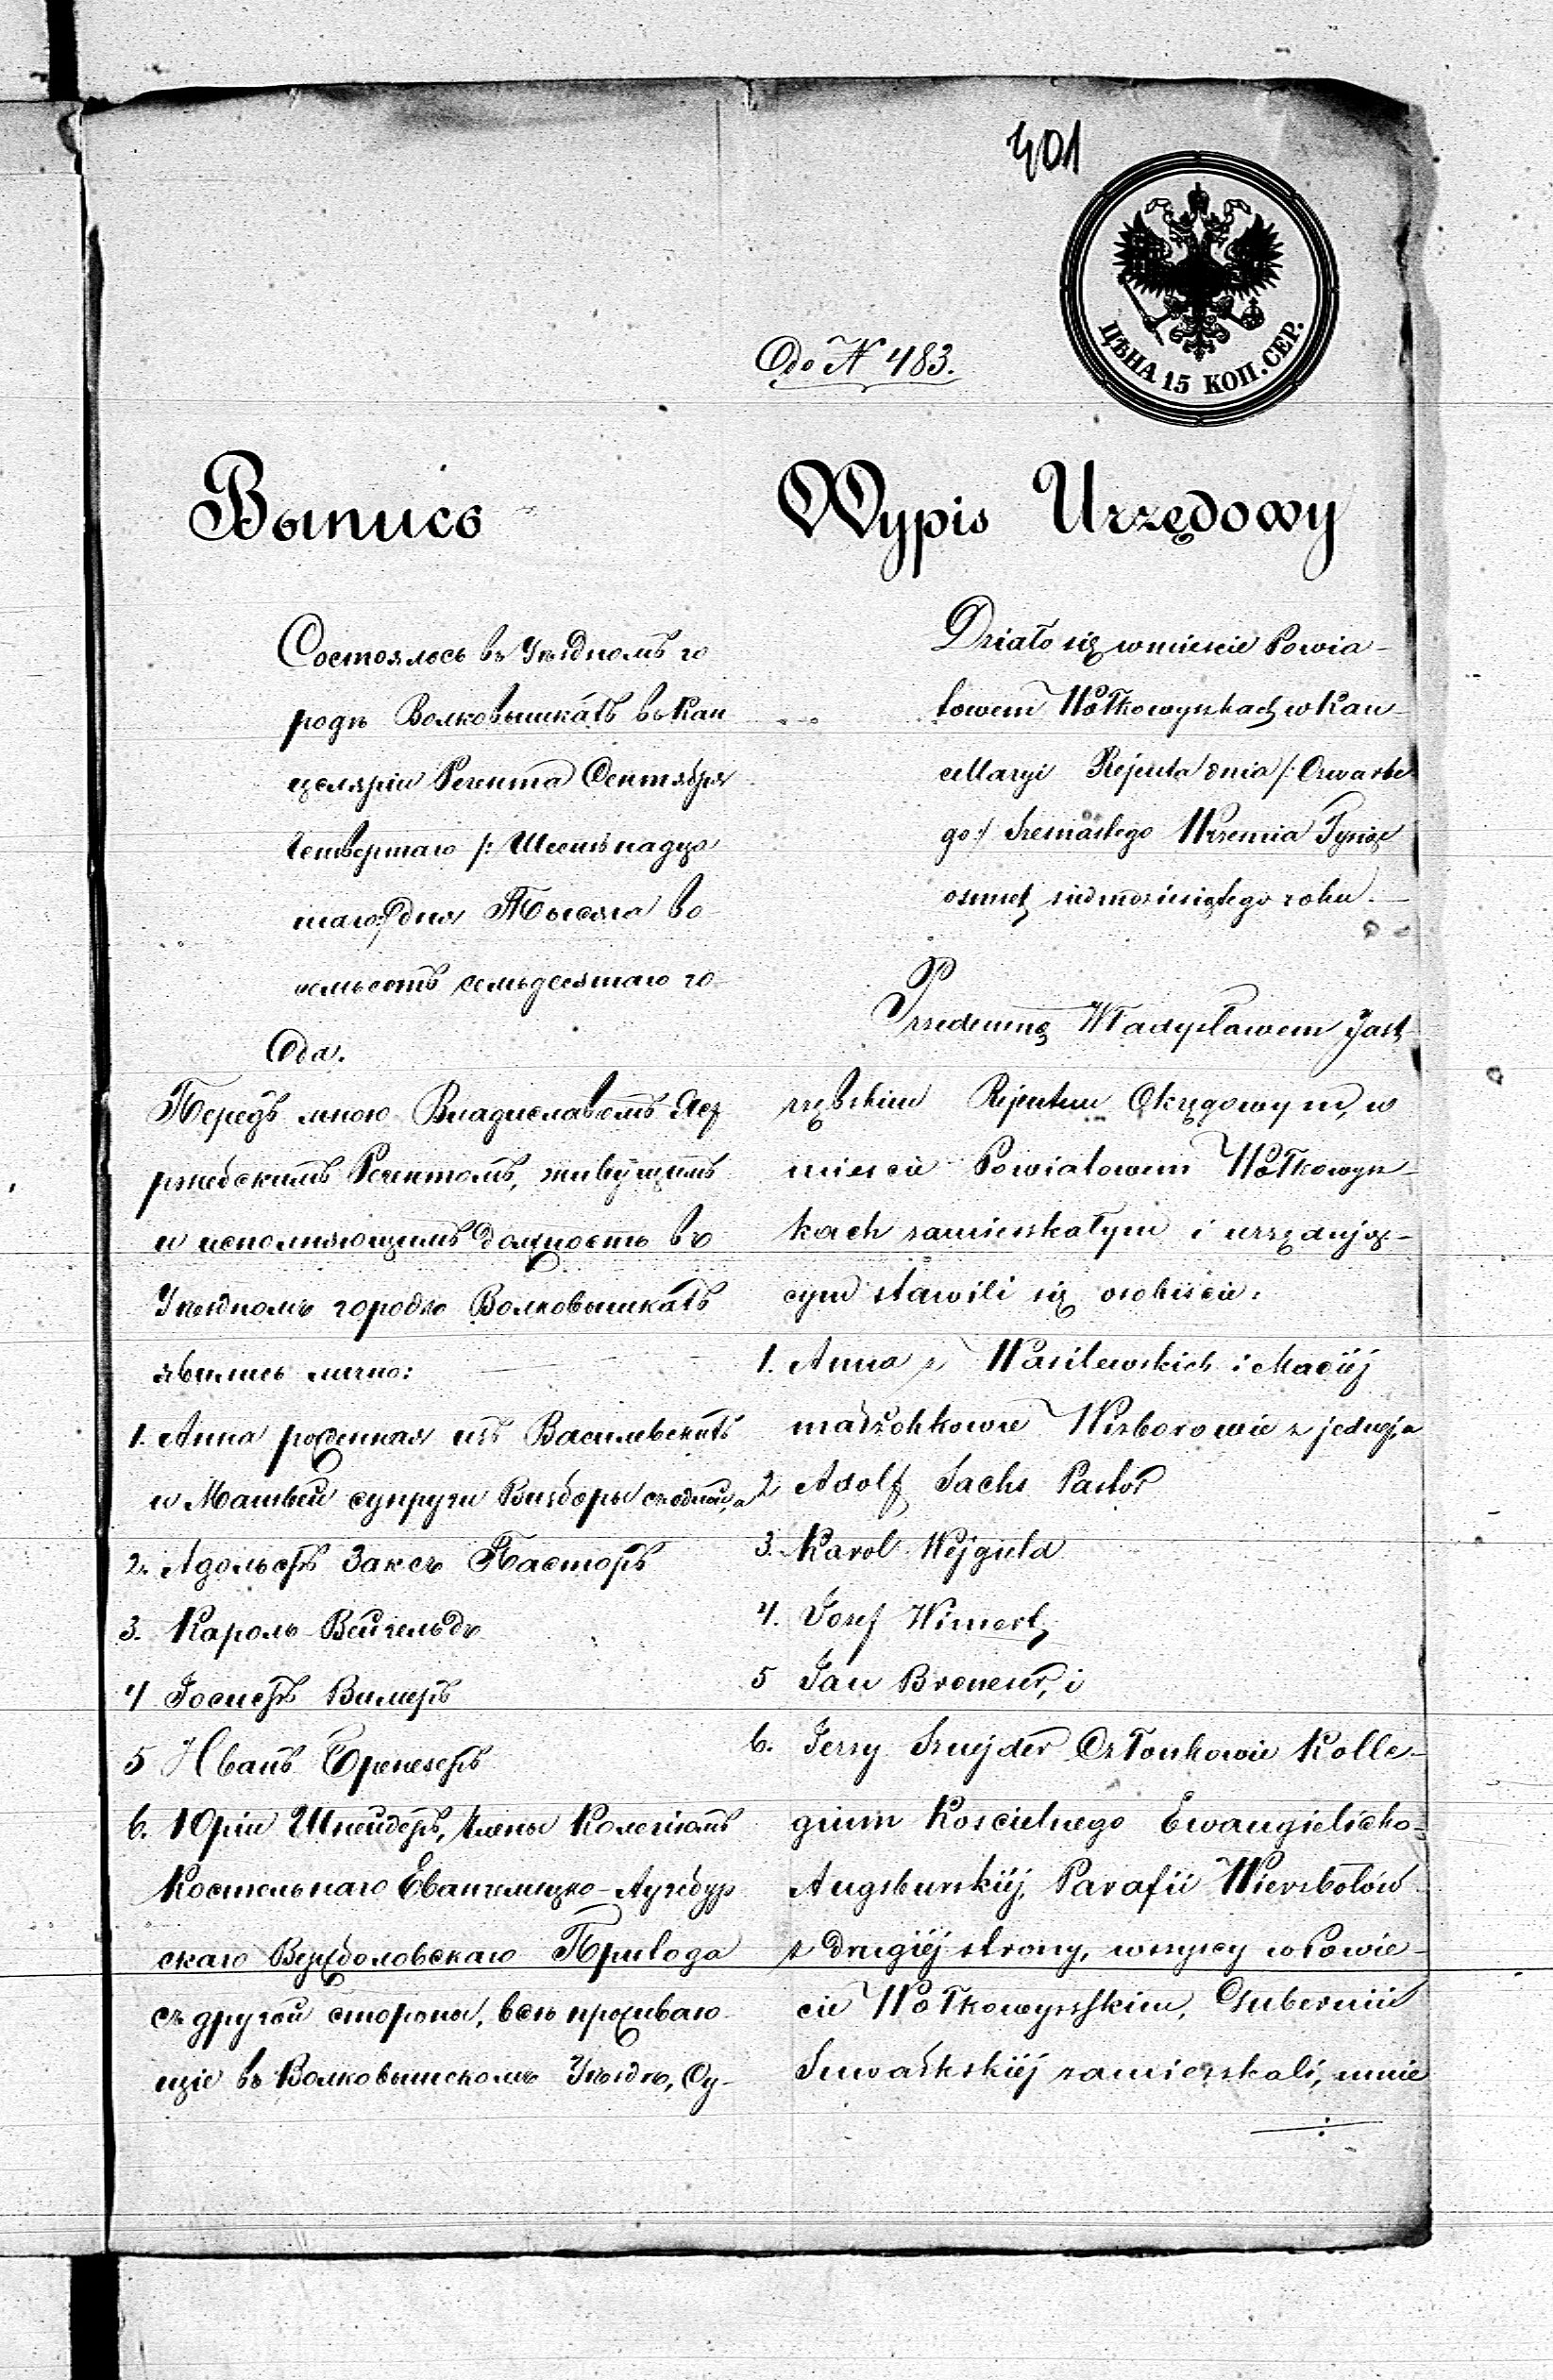 401
ЦѢНА 15 КОП. СЕР.
Do N 483.
Выпись
Состоялось въ Уѣздномъ го
родѣ Волковышкахъ въ Кан
целяріи Регента Сентября
Четвертаго /: Шестнадца
таго :/ дня Тысяча во
семьсотъ семьдесятаго го
да.
Передъ мною Владиславомъ Яст
ржебскимъ Регентомъ, живущимъ
и исполняющимъ должность въ
Уѣздномъ городѣ Волковышкахъ
явились лично:
1. Анна рожденная изъ Василевскихъ
и Матвей супруги Визборы съ одной, а
2. Адольфъ Заксъ Пасторъ
3. Кароль Вейгельдъ
4 Іосифъ Вимеръ
5 Иванъ Бренезеръ
6. Юрій Шнейдеръ, Члены Колегіюмъ
Костельнаго Евангелицко-Аугсбур
скаго Вержболовскаго Прихода
съ другой стороны, всѣ прожываю
щіе въ Волковышскомъ Уѣздѣ, Су-
Wypis Urzędowy
Działo się w mieście Powia-
towem Wołkowyszkach w Kan-
cellaryi Rejenta dnia /: Czwarte
go :/ Szesnastego Września Tysiąc
osmset siedmdziesiątego roku.
Przedemną Władysławem Jast-
rzębskim Rejentem Okręgowym, w
mieście Powiatowem Wołkowysz-
kach zamieszkałym i urzędują-
cym stawili się osobiście:
1. Anna z Wasilewskich i Maciéj
małżonkowie Wizborowie z jednej, a
2 Adolf Sachs Pastor
3. Karol Wejgield
4. Jozef Wimert,
5 Jan Brenezer, i
6. Jerzy Sznejder Członkowie Kolle-
gium Koscielnego Ewangielicko-
Augsburskiéj Parafii Wierzbołów
z drugiéj strony, wszyscy w Powie-
cie Wołkowyszskim, Gubernii
Suwałkskiéj zamieszkali, mnie